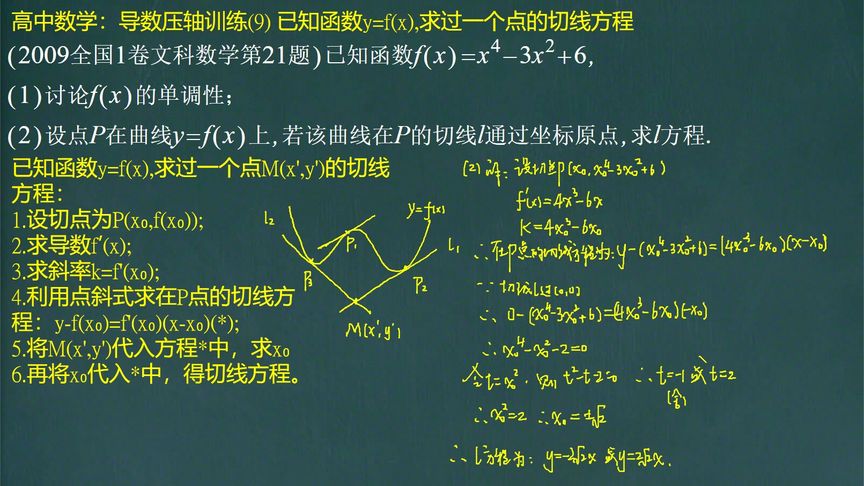 高中数学：导数压轴训练(9) 已知函数y=f(x),求过一个点的切线方程
(2009全国1卷文科数学第21题)已知函数f(x)=x⁴-3x²+6,
(1)讨论f(x)的单调性;
(2)设点P在曲线y=f(x)上,若该曲线在P的切线l通过坐标原点,求l方程.
已知函数y=f(x),求过一个点M(x',y')的切线
方程：
1.设切点为P(x₀,f(x₀));
2.求导数f'(x);
3.求斜率k=f'(x₀);
4.利用点斜式求在P点的切线方
程：y-f(x₀)=f'(x₀)(x-x₀)(*);
5.将M(x',y')代入方程*中，求x₀
6.再将x₀代入*中，得切线方程。
l₂
y=f(x)
P₁
l₁
P₃
P₂
M(x',y')
(2)解：设切点P(x₀,x₀⁴-3x₀²+6)
f'(x)=4x³-6x
K=4x₀³-6x₀
∴在P点的切线方程为:y-(x₀⁴-3x₀²+6)=(4x₀³-6x₀)(x-x₀)
∵切线l过(0,0)
∴0-(x₀⁴-3x₀²+6)=(4x₀³-6x₀)(-x₀)
∴x₀⁴-x₀²-2=0
令t=x₀²,则t²-t-2=0 ∴t=-1或t=2
(舍)
∴x₀²=2 ∴x₀=±√2
∴l方程为：y=-2√2x或y=2√2x.